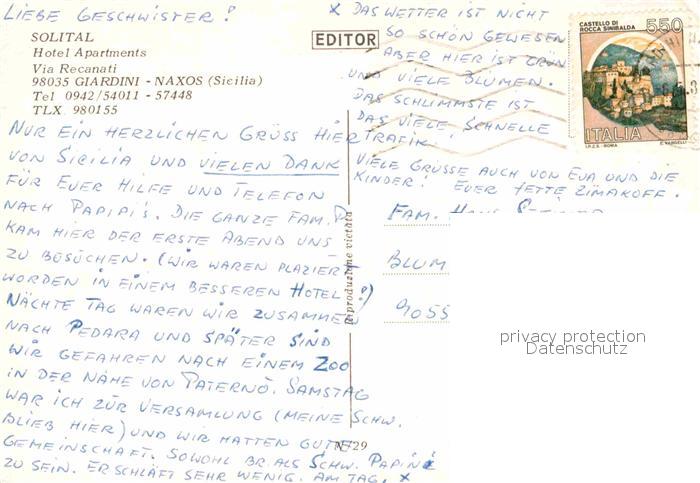 LIEBE GESCHWISTER!
SOLITAL
Hotel Apartments
Via Recanati
98035 GIARDINI - NAXOS (Sicilia)
Tel 0942/54011 - 57448
TLX 980155
NUR EIN HERZLICHEN GRÜSS HIER
VON SICILIA UND VIELEN DANK
FÜR EUER HILFE UND TELEFON
NACH PAPIPI'S. DIE GANZE FAM. P.
KAM HIER DER ERSTE ABEND UNS
ZU BÜSUCHEN. (WIR WAREN PLAZIERT
WORDEN IN EINEM BESSEREN HOTEL!)
NÄCHTE TAG WAREN WIR ZUSAMMEN
NACH PEDARA UND SPÄTER SIND
WIR GEFAHREN NACH EINEM ZOO
IN DER NÄHE VON PATERNÒ. SAMSTAG
WAR ICH ZUR VERSAMLUNG (MEINE SCHW.
BLIEB HIER) UND WIR HATTEN GUTE
GEMEINSCHAFT. SOWOHL BR. ALS SCHW. PAPINI
ZU SEIN. ER SCHLÄFT SEHR WENIG. AM TAG. X
EDITOR
Riproduzione vietata
N/29
X DAS WETTER IST NICHT
SO SCHÖN GEWESEN
ABER HIER IST GRÜN
UND VIELE BLUMEN.
DAS SCHLIMMSTE IST
DAS VIELE, SCHNELLE
TRAFIK!
VIELE GRÜSSE AUCH VON EVA UND DIE
KINDER! EUER JETTE ZIMAKOFF.
CASTELLO DI
ROCCA SINIBALDA
550
ITALIA
I.P.Z.S. - ROMA
E. VANGELLI
FAM.
BLUM
9055
privacy protection
Datenschutz